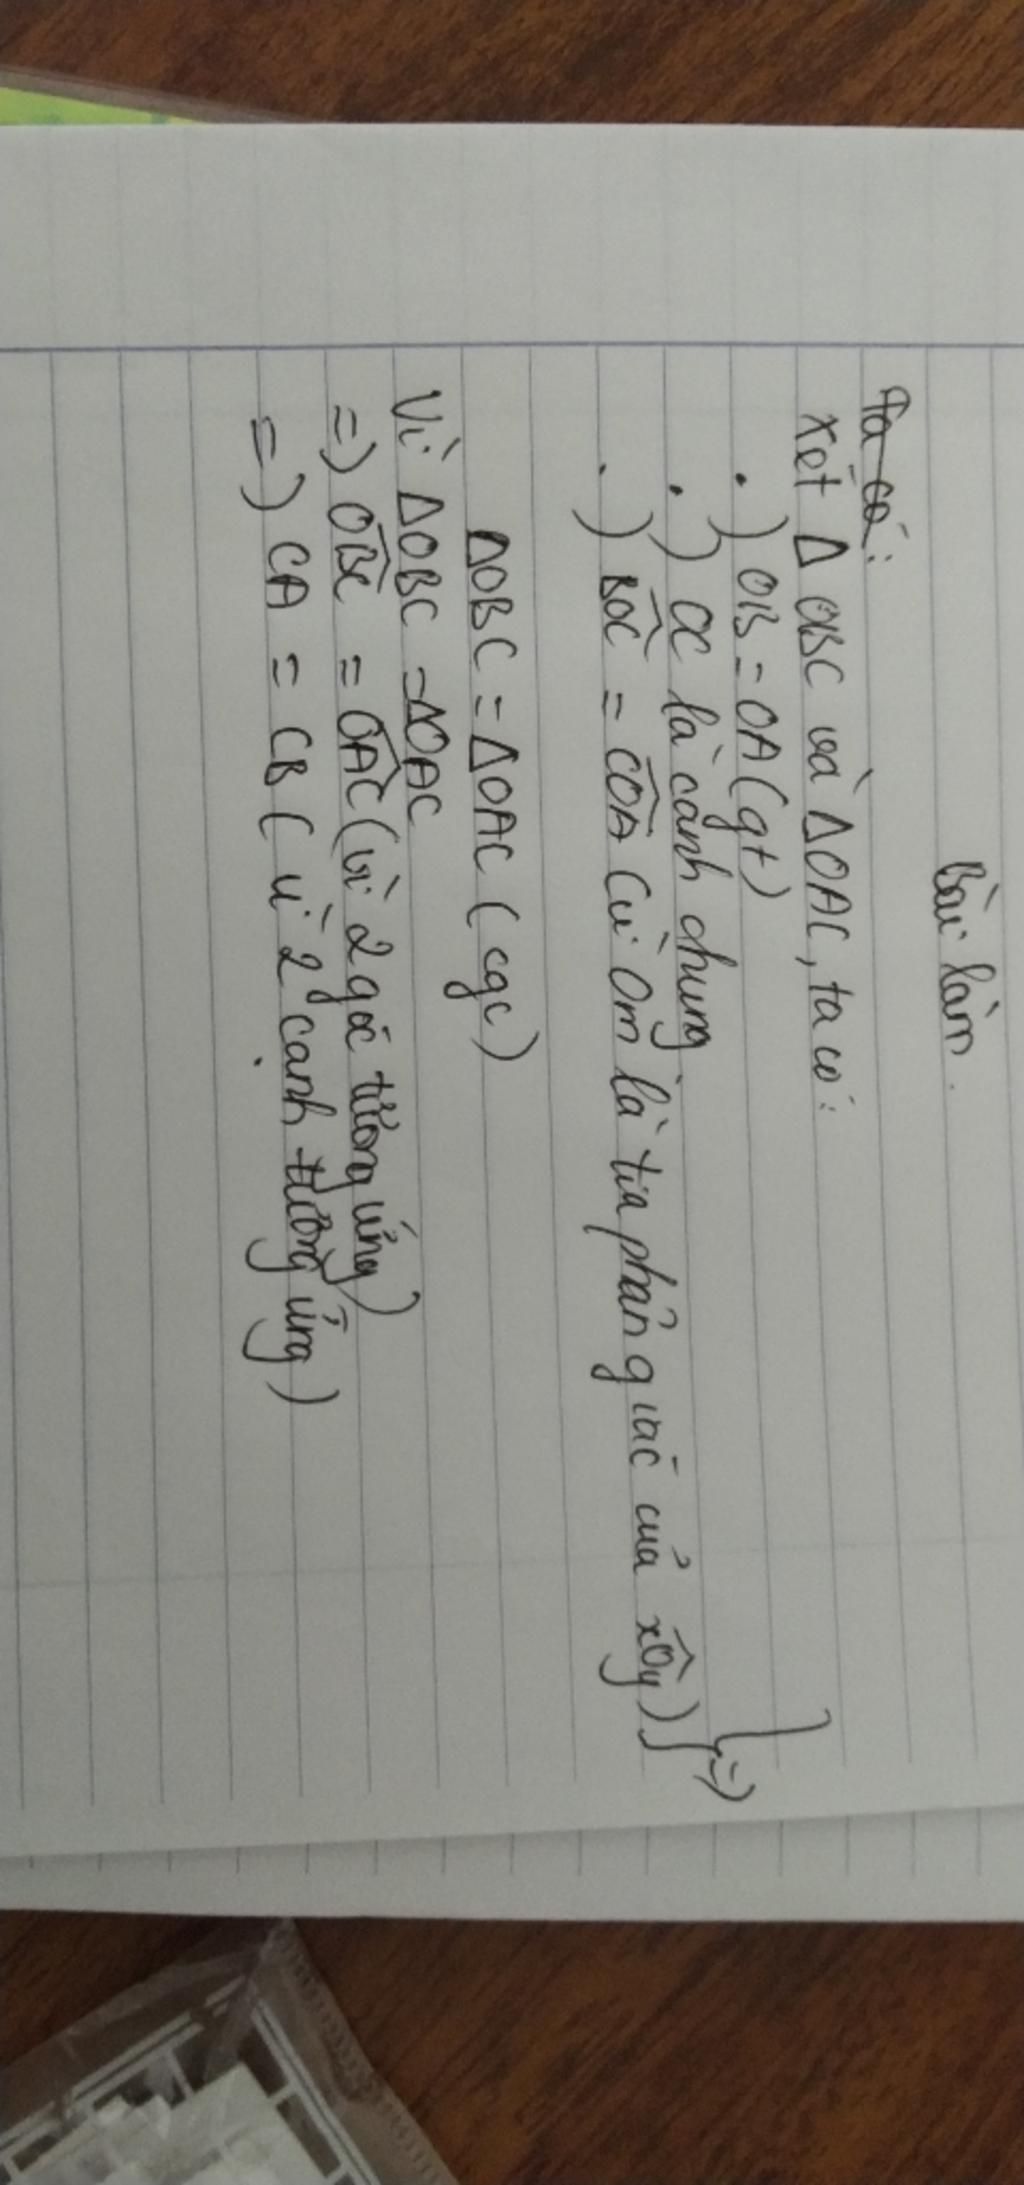 Bài làm.
Ta có:
xét Δ OBC và ΔOAC, ta có:
•) OB = OA (gt)
•) OC là cạnh chung
•) BÔC = CÔA (vì Om là tia phân giác của xÔy) } =>
ΔOBC = ΔOAC (cgc)
Vì ΔOBC = ΔOAC
=) OB̂C = OÂC (vì 2 góc tương ứng)
=) CA = CB (vì 2 cạnh tương ứng)